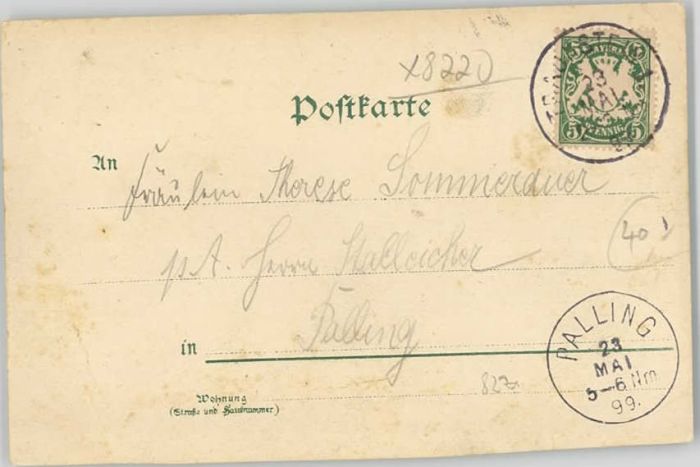 x8220
Postkarte
5 5
PFENNIG
TRAUNSTEIN
23
MAI
An
Fräulein Therese Sommerauer
p. A. Herrn
40
Palling
in
PALLING
23
MAI
5-6.Nm
99.
Wohnung
(Straße und Hausnummer)